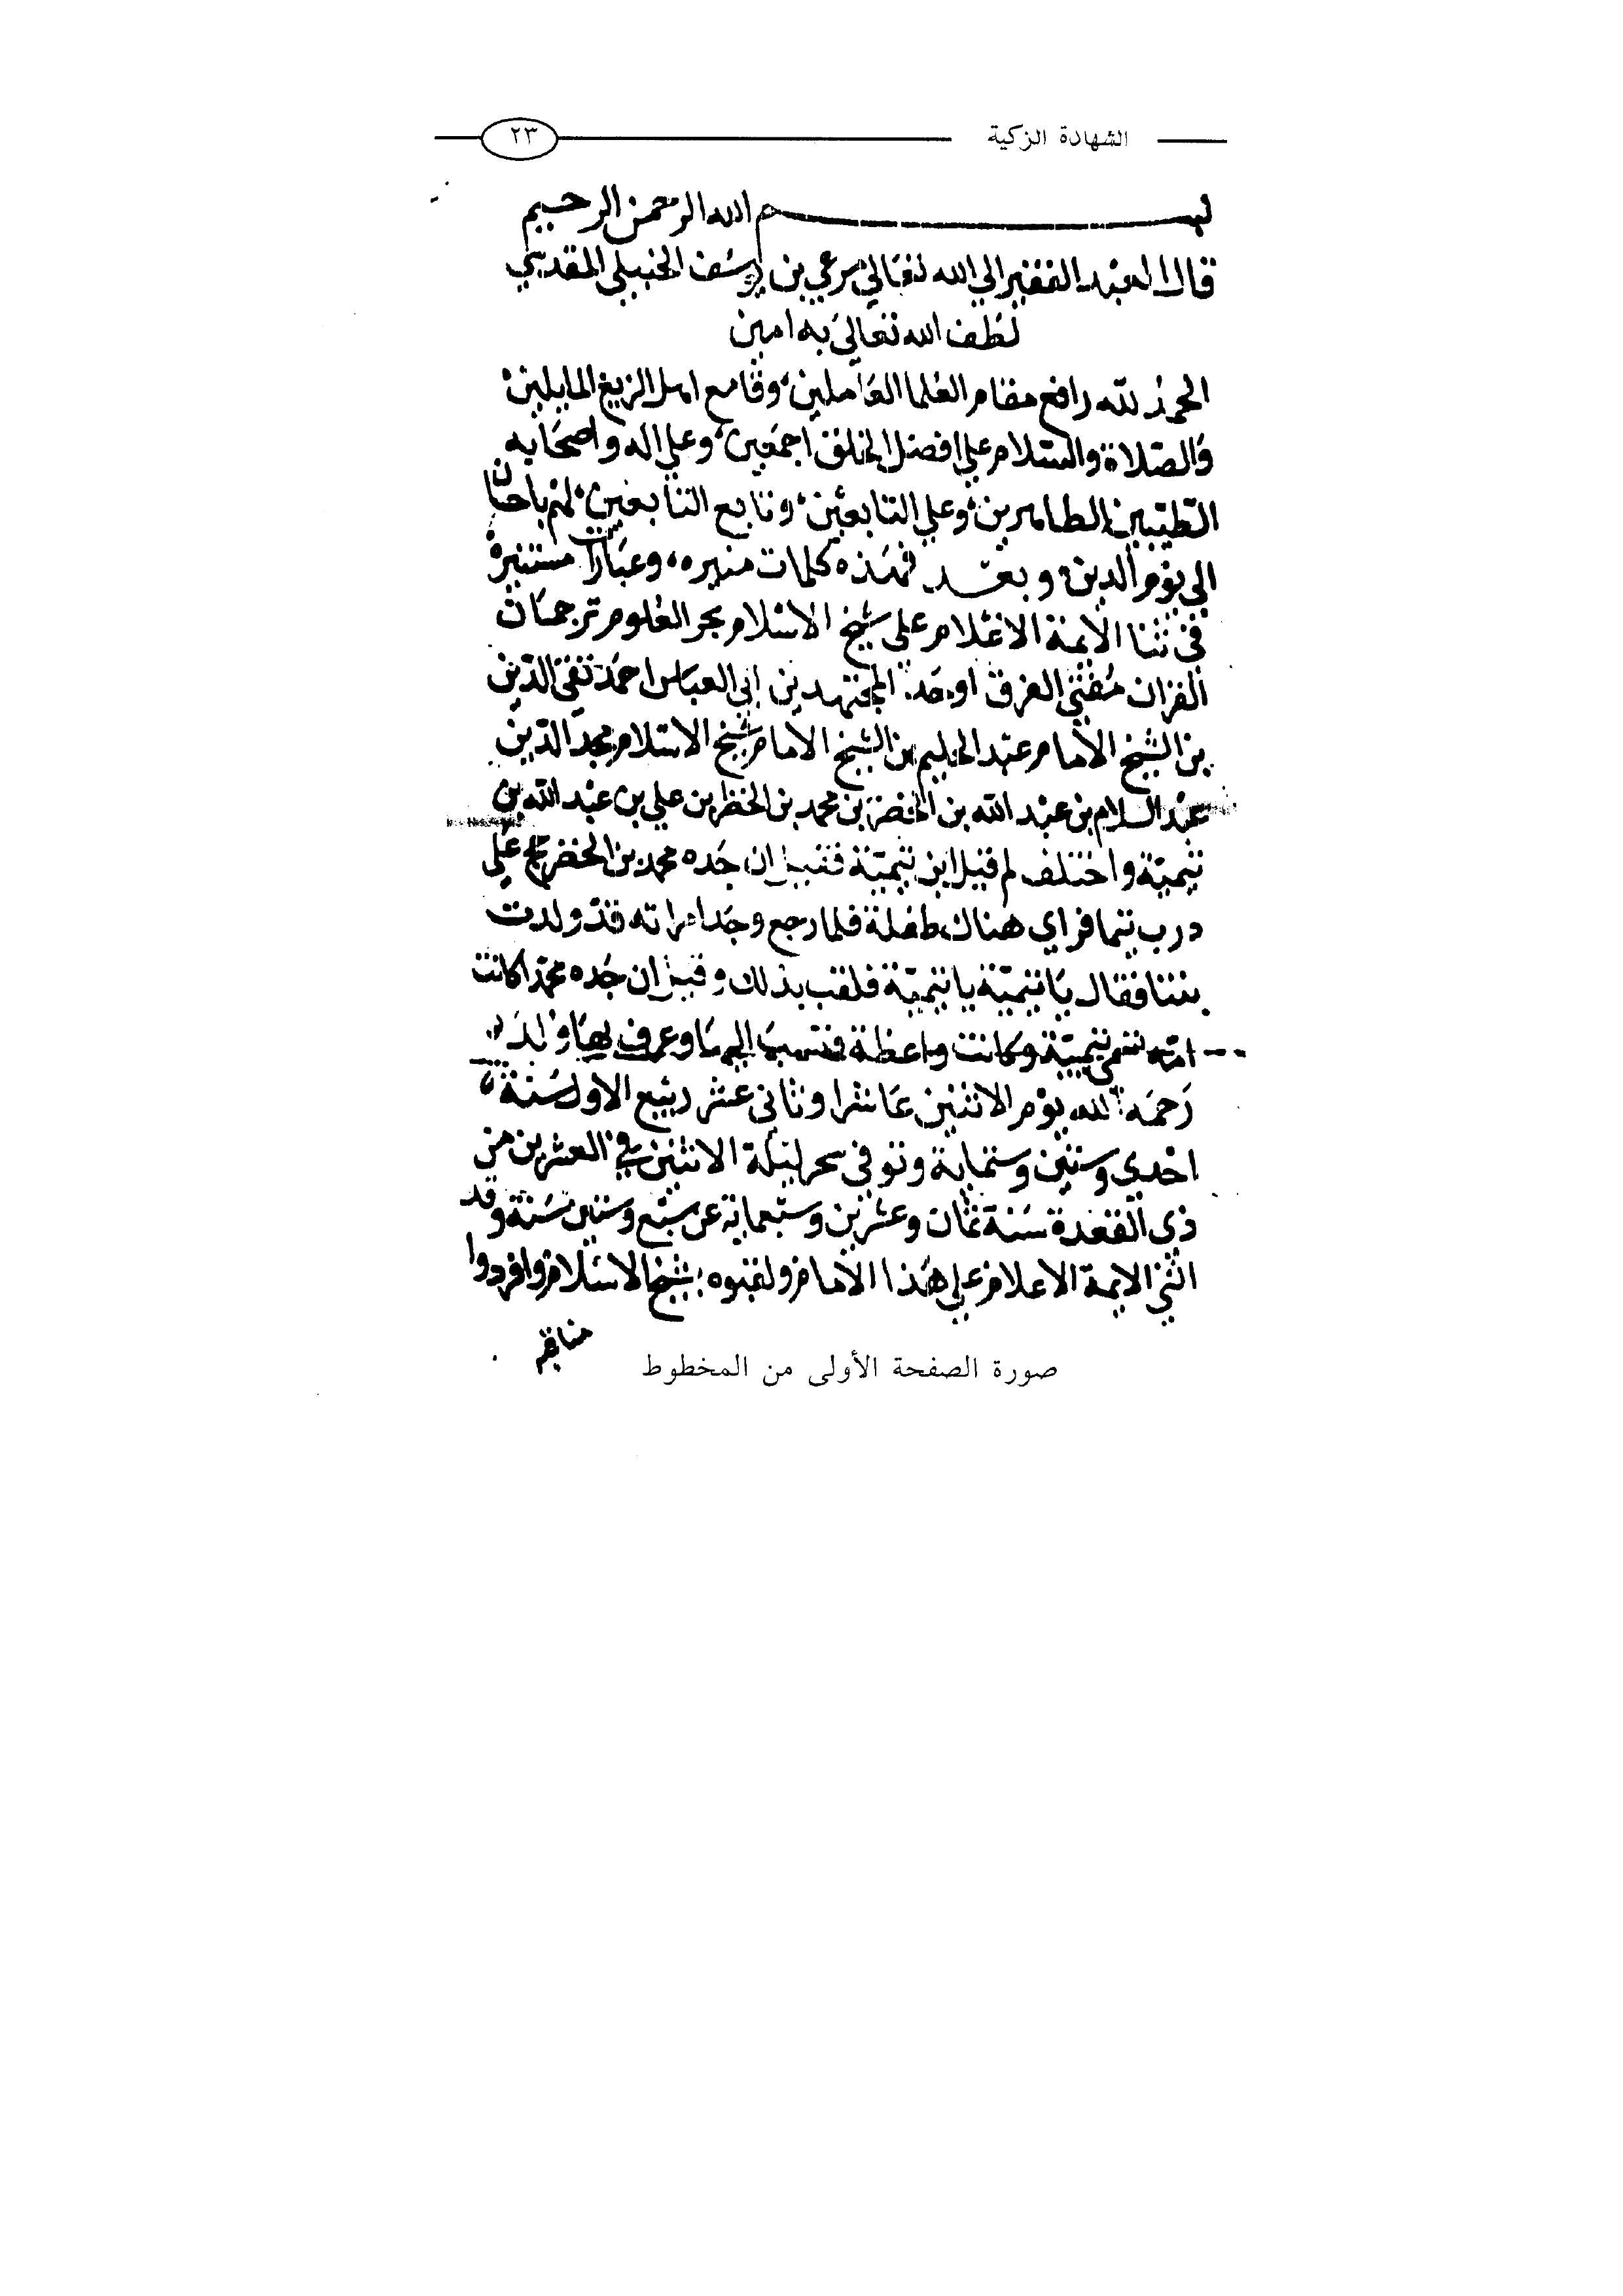 الشهادة الزكية ٢٣
بسم الله الرحمن الرحيم
قال العبد الفقير الي الله تعالي مرعي بن يوسف الحنبلي المقدسي
لطف الله تعالي به امين
الحمد لله رافع مقام العلما العاملين، وقامع اهل الزيغ المايلين
والصلاة والسلام علي افضل الخلق اجمعين، وعلي اله واصحابه
الطيبين الطاهرين، وعلي التابعين، وتابع التابعين، لهم باحسان
الي يوم الدين، وبعد فهذه كلمات منيره، وعبارات مستنيرة
في ثنا الايمة الاعلام علي شيخ الاسلام بحر العلوم ترجمان
القران مفتي الفرق اوحد المجتهدين ابي العباس احمد تقي الدين
بن الشيخ الامام عبد الحليم بن الشيخ الامام شيخ الاسلام مجد الدين
عبد السلام بن عبد الله بن الخضر بن محمد بن الخظر بن علي بن عبد الله بن
تيمية واختلف لم قيل ابن تيمية فقيل ان جده محمد بن الخضر حج علي
درب تيما فراي هناك طفلة فلما رجع وجد امراته قد ولدت
بنتا فقال يا تيمية يا تيمية فلقب بذلك وقيل ان جده محمدا كانت
امه تسمي تيمية وكانت واعظة فنسب اليها وعرف بها ولد
رحمه الله يوم الاثنين عاشر او ثاني عشر ربيع الاول سنة
احدي وستين وستماية وتوفي سحر ليلة الاثنين في العشرين من
ذي القعدة سنة ثمان وعشرين وسبعماية عن سبع وستين سنة وقد
اثني الايمة الاعلام علي هذا الامام ولقبوه بشيخ الاسلام وافردوا
مناقبه
صورة الصفحة الأولى من المخطوط